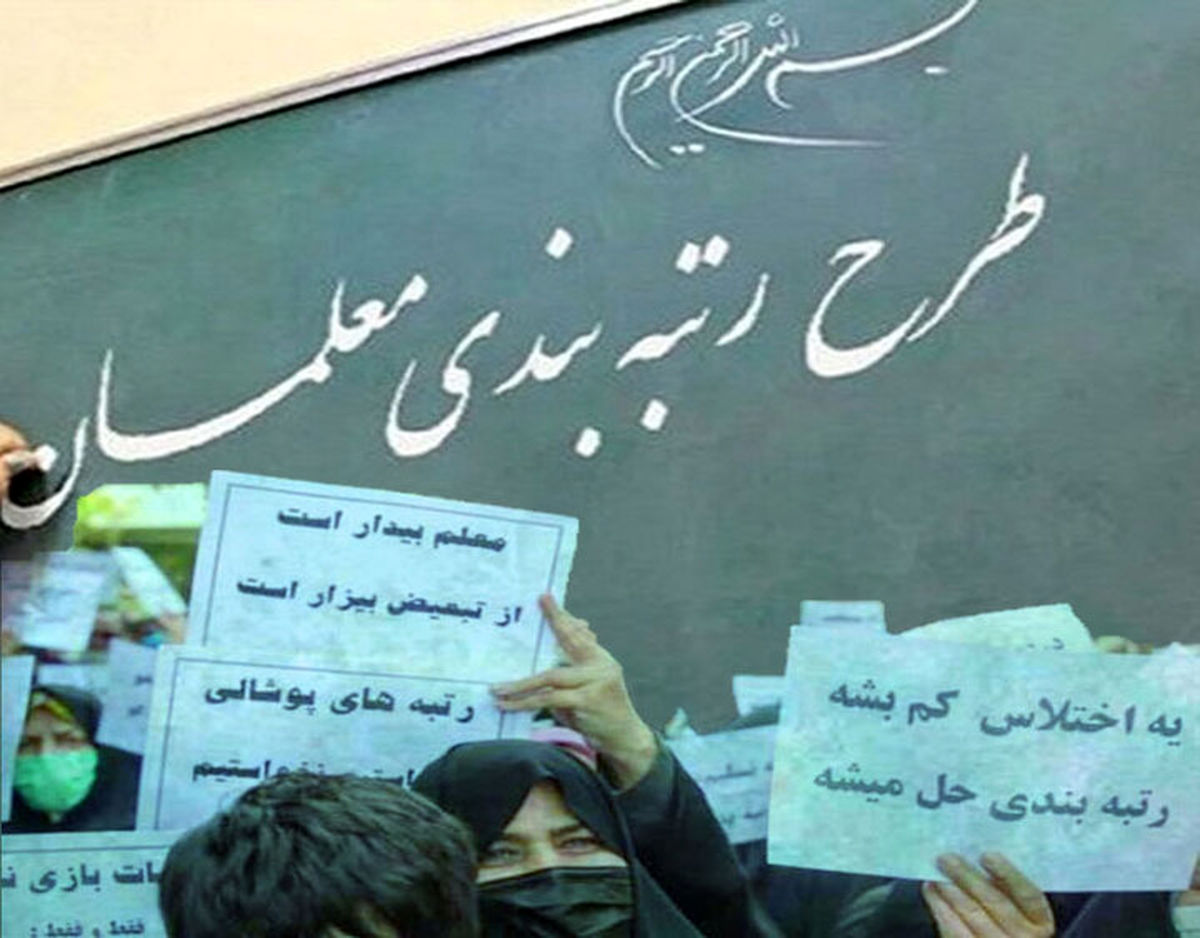 بسم الله الرحمن الرحیم
طرح رتبه بندی معلمان
معلم بیدار است
از تبعیض بیزار است
رتبه های پوشالی
یه اختلاس کم بشه
رتبه بندی حل میشه
بازی
فقط و فقط :